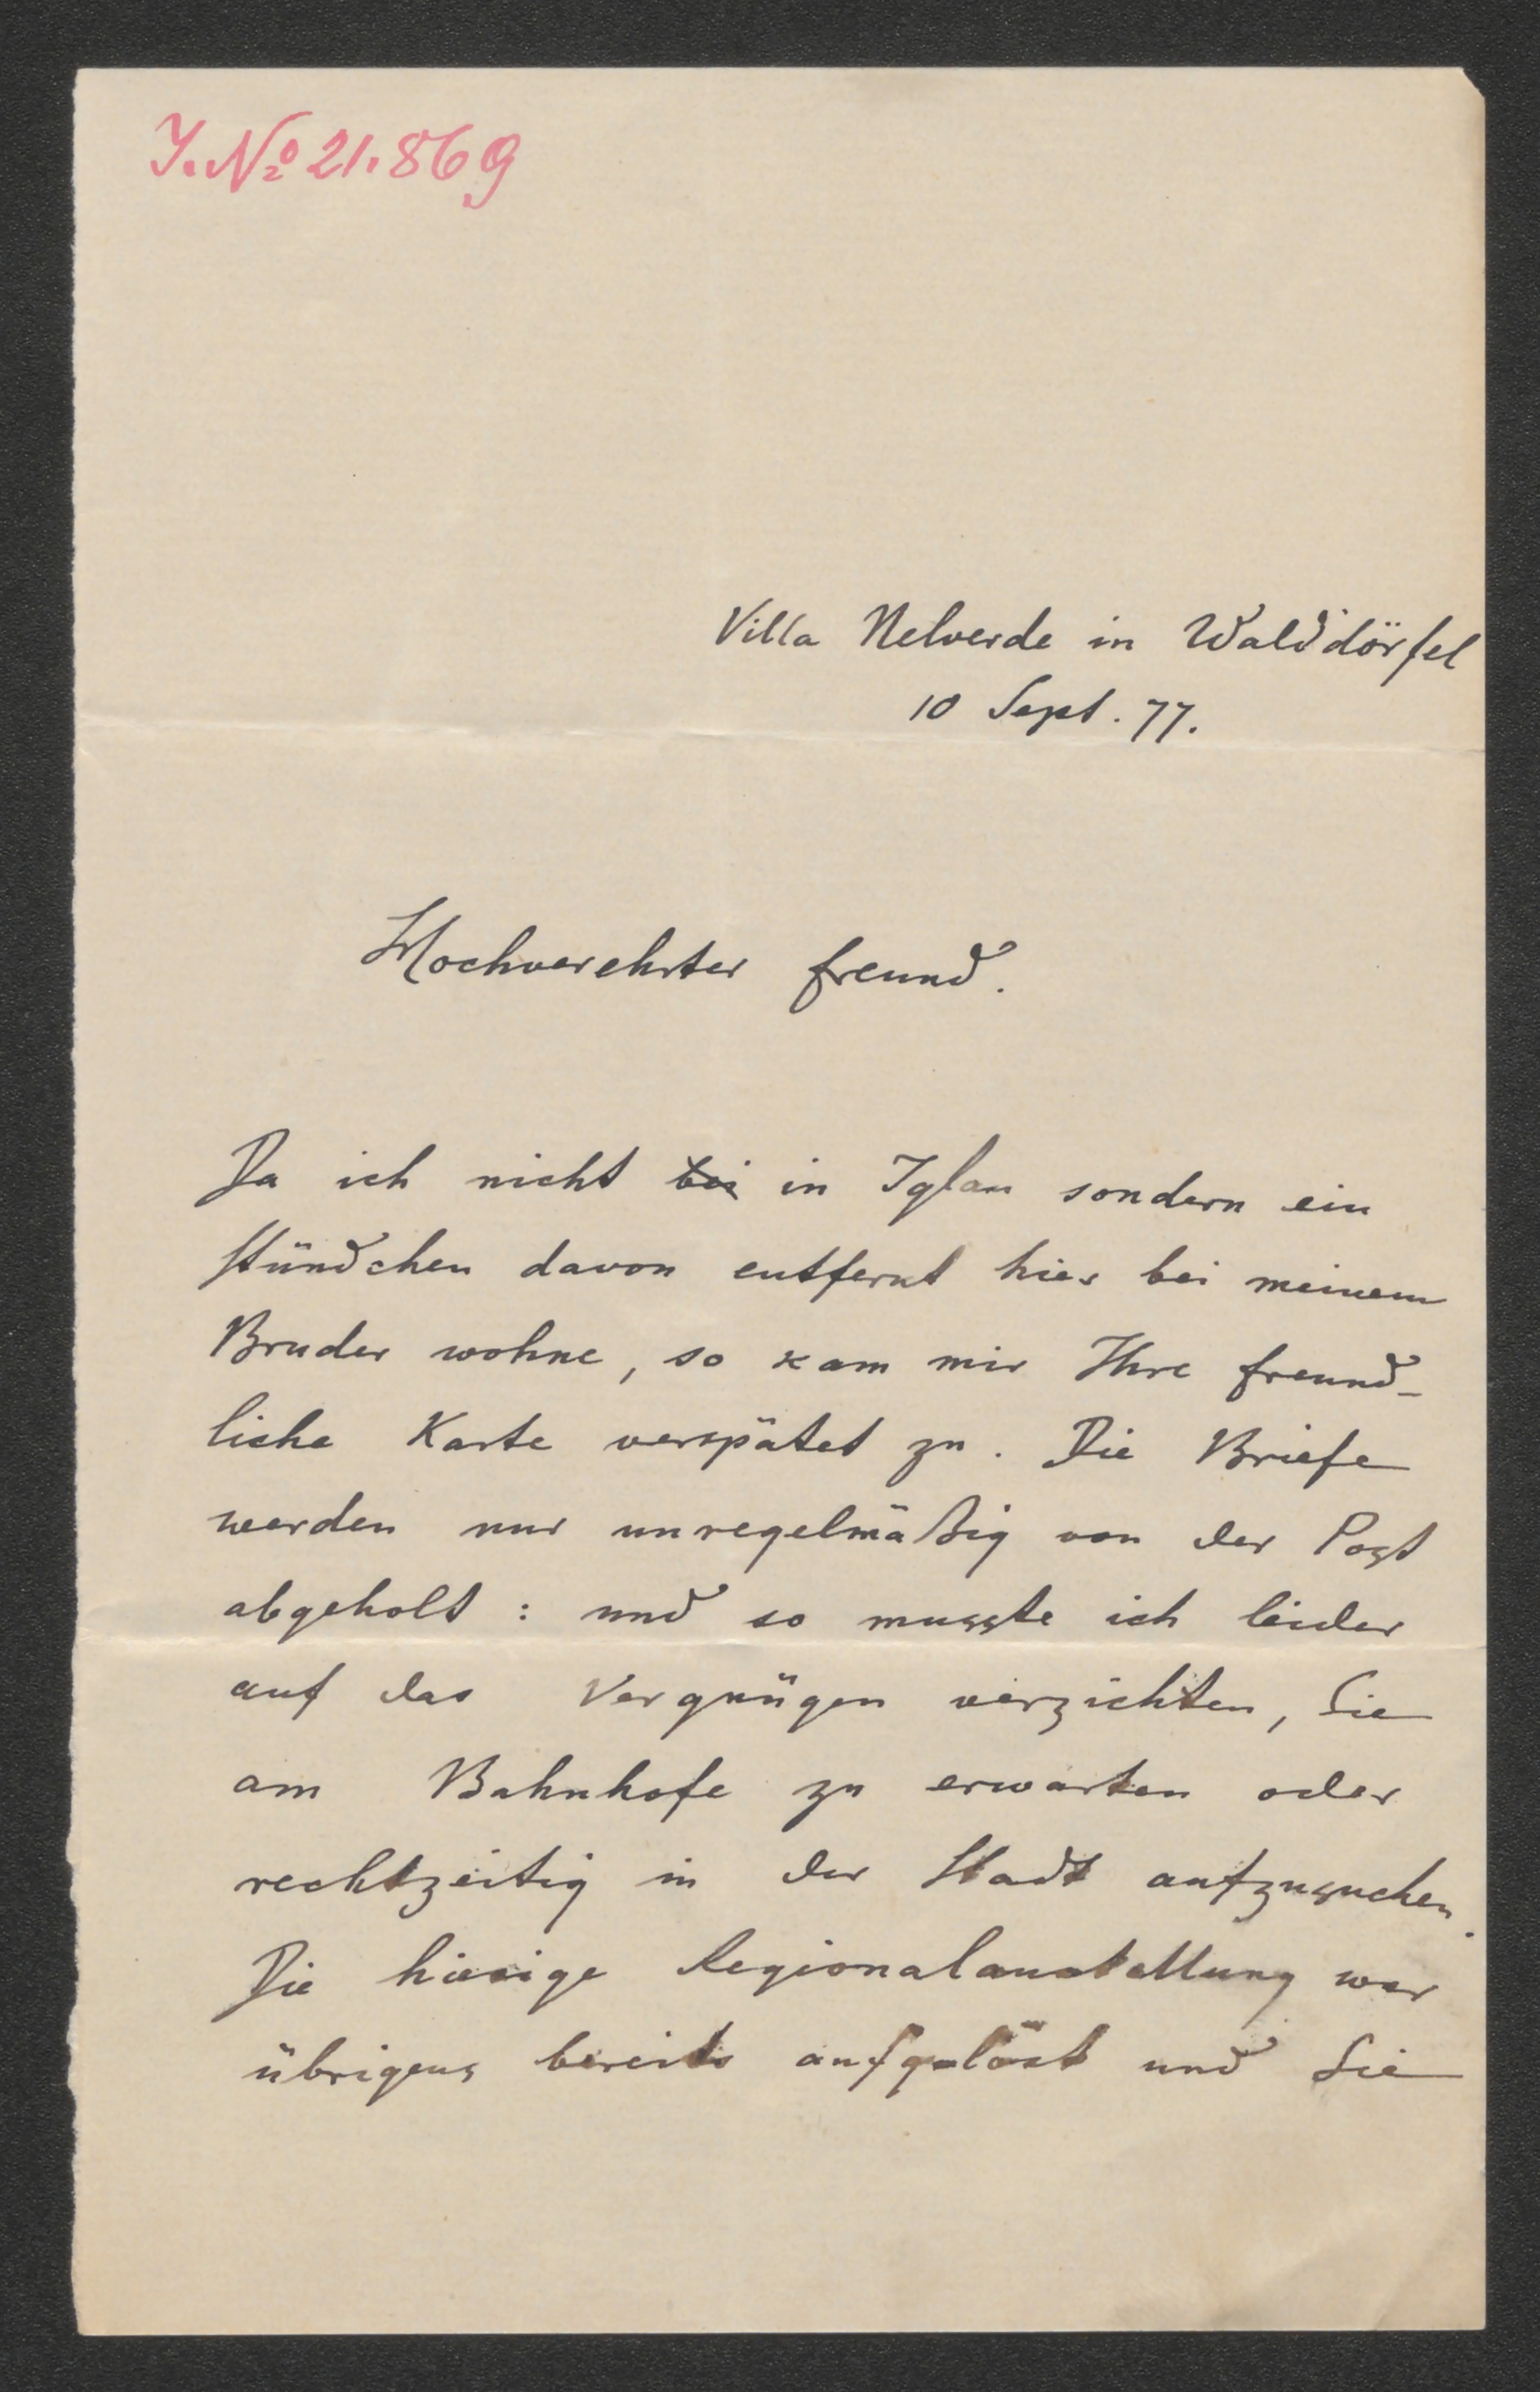 J. No 21.869
Villa Helverde in Walddörfel
10 Sept. 77.
Hochverehrter Freund.
Da ich nicht bei in Iglau sondern ein
Stündchen davon entfernt hier bei meinem
Bruder wohne, so kam mir Ihre freund-
liche Karte verspätet zu. Die Briefe
werden nur unregelmäßig von der Post
abgeholt : und so musste ich leider
auf das Vergnügen verzichten, Sie
am Bahnhofe zu erwarten oder
rechtzeitig in der Stadt aufzusuchen.
Die hiesige Regionalausstellung war
übrigens bereits aufgelöst und Sie